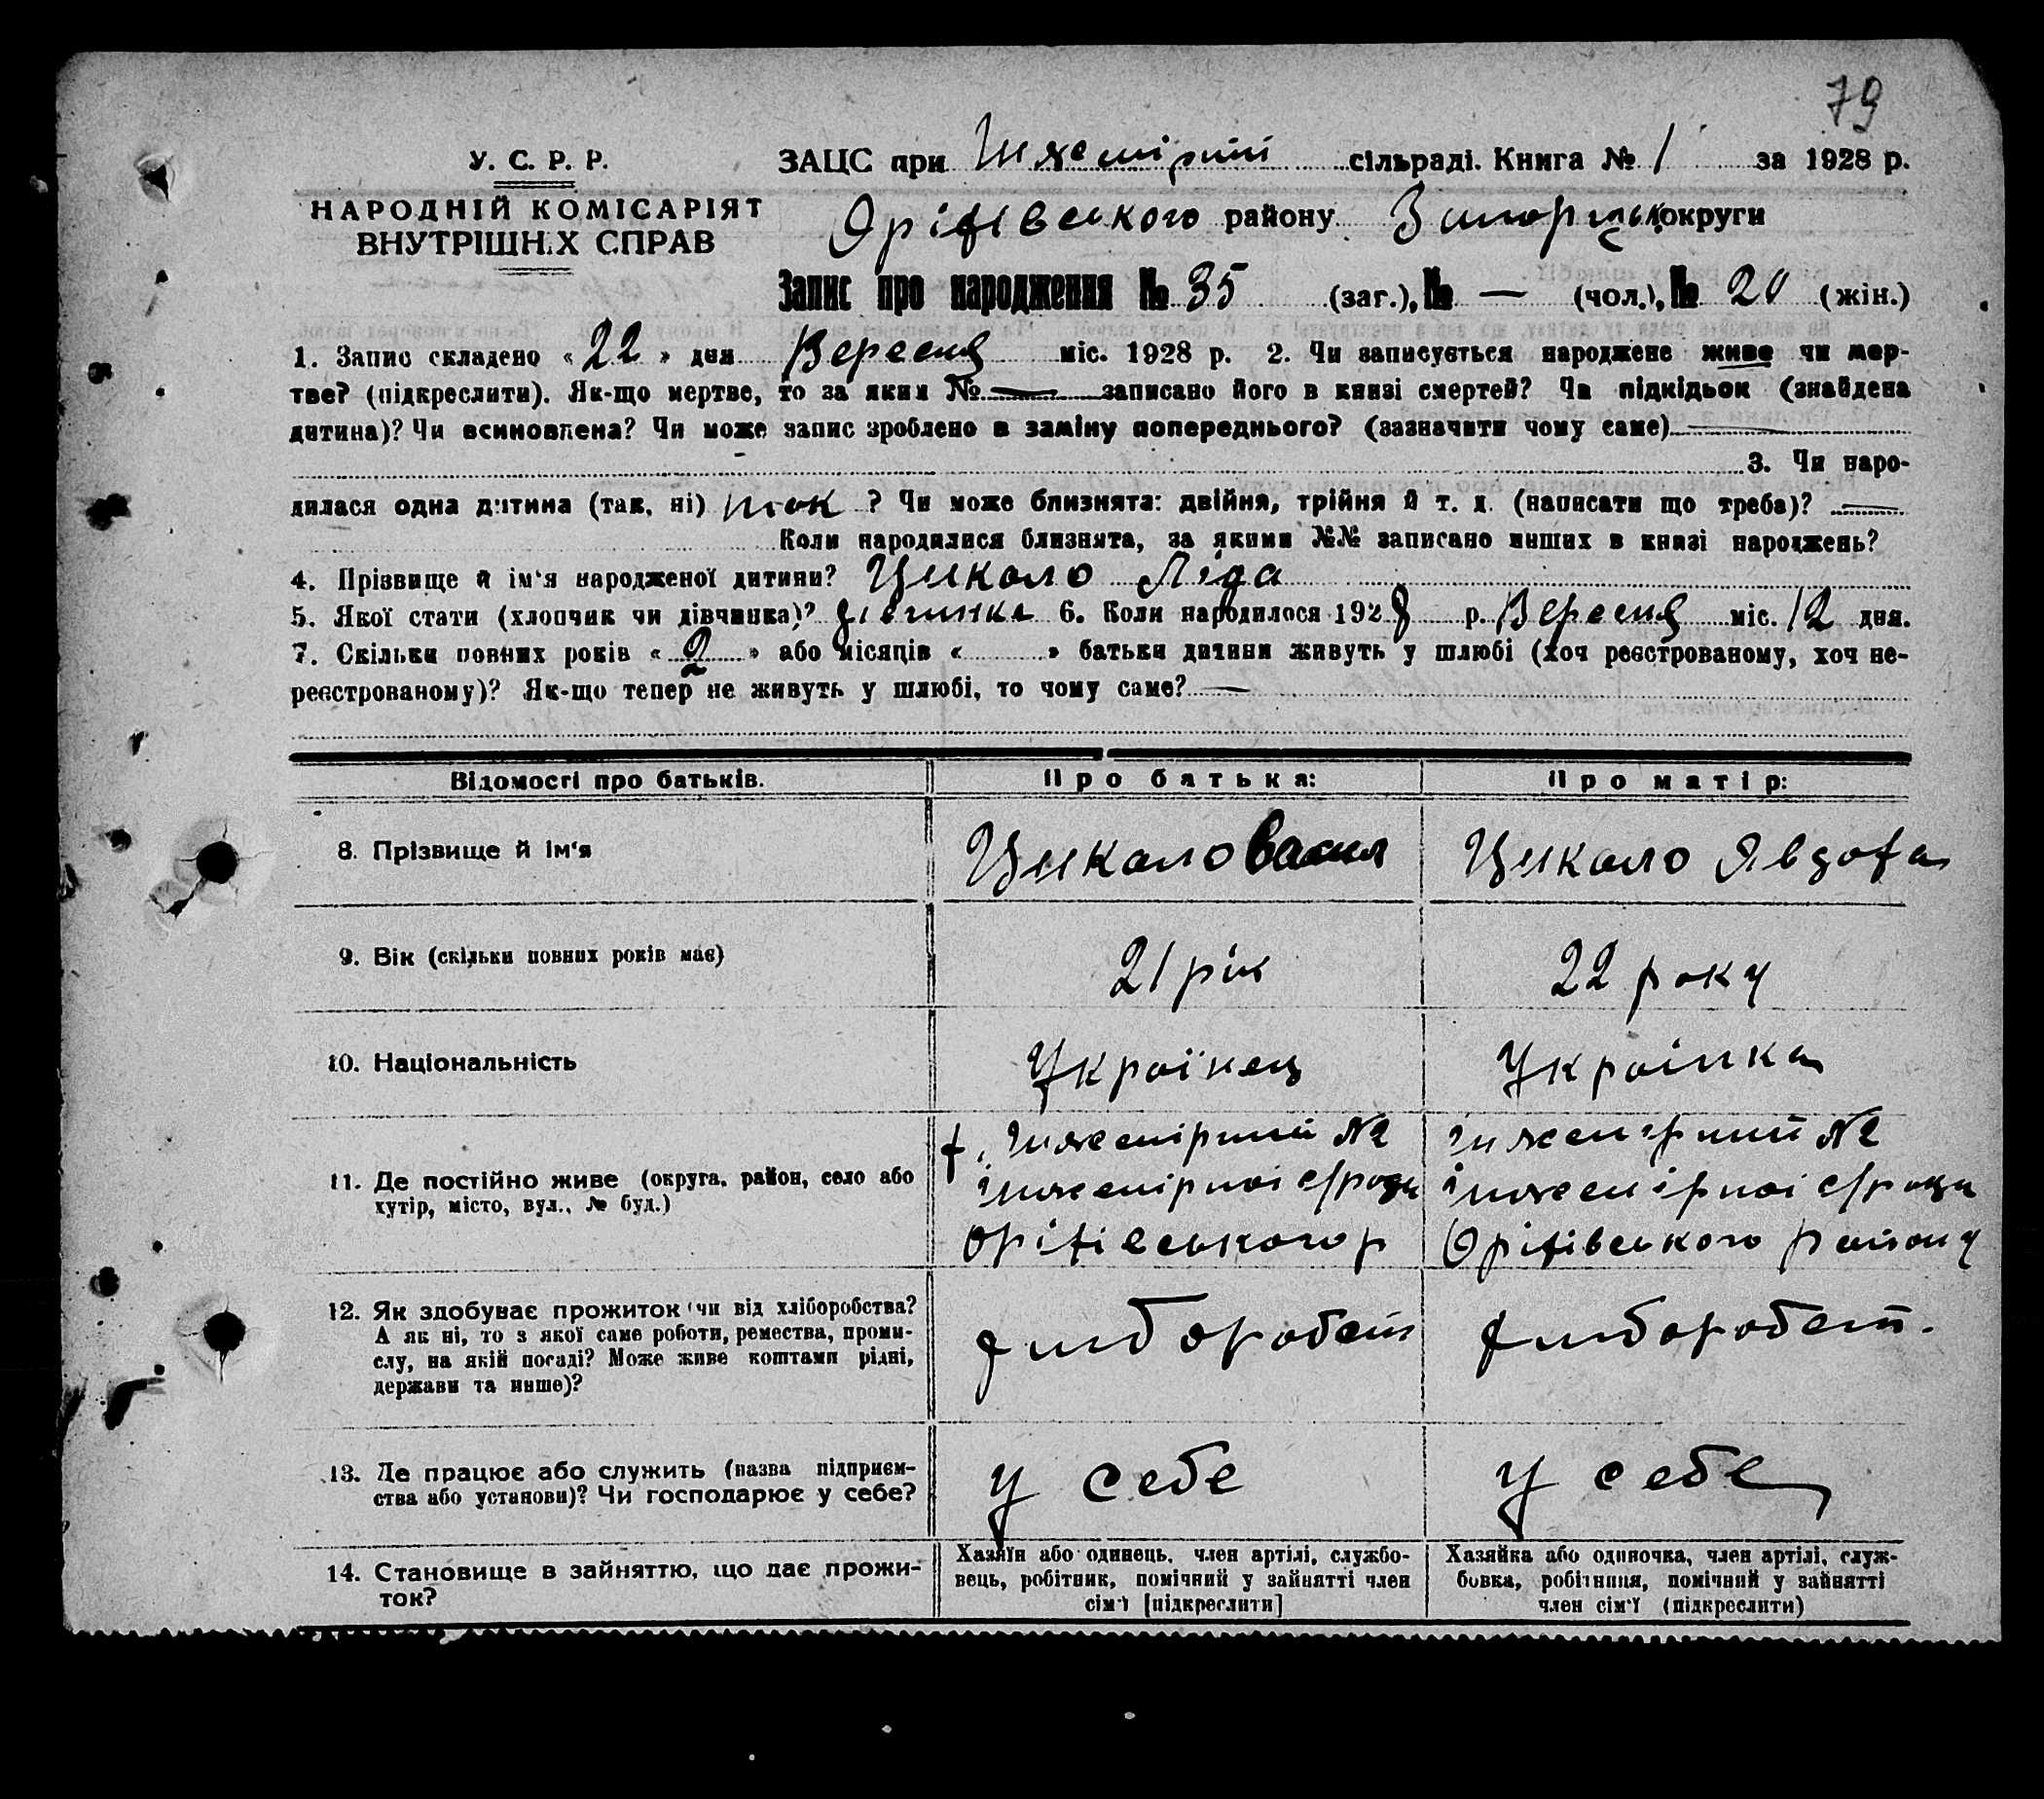 79
У. С. Р. Р.
НАРОДНІЙ КОМІСАРІЯТ
ВНУТРІШНІХ СПРАВ
ЗАЦС при Інженірній сільраді. Книга № 1 за 1928 р.
Оріхівського району Запоріжськ округи
Запис про народження № 35 (заг.), № — (чол.), № 20 (жін.)
1. Запис складено «22» дня Вересня міс. 1928 р. 2. Чи записується народжене живе чи мер-
тве? (підкреслити). Як-що мертве, то за яким № — записано його в книзі смертей? Чи підкідьок (знайдена
дитина)? Чи всиновлена? Чи може запис зроблено в заміну попереднього? (зазначити чому саме) —
3. Чи наро-
дилася одна дитина (так, ні) так ? Чи може близнята: двійня, трійня й т. д. (написати що треба)? —
Коли народилися близнята, за якими №№ записано инших в книзі народжень?
4. Прізвище й ім'я народженої дитини? Цикало Ліда
5. Якої стати (хлопчик чи дівчинка)? дівчинка 6. Коли народилося 1928 р. Вересня міс. 12 дня.
7. Скільки повних років «2» або місяців « » батьки дитини живуть у шлюбі (хоч реєстрованому, хоч не-
реєстрованому)? Як-що тепер не живуть у шлюбі, то чому саме? —
Відомості про батьків. Про батька: Про матір:
8. Прізвище й ім'я Цикало Васил Цикало Явдоха
9. Вік (скільки повних років має) 21 рік 22 року
10. Національність Українец Українка
11. Де постійно живе (округа, район, село або
хутір, місто, вул., № буд.)
х. Інженірний №2
Інженірноі с/ради
Оріхівського р
Інженірний №2
Інженірноі с/ради
Оріхівського району
12. Як здобуває прожиток (чи від хліборобства?
А як ні, то з якої саме роботи, ремества, проми-
слу, на якій посаді? Може живе коштами рідні,
держави та инше)?
хліборобст хліборобст.
13. Де працює або служить (назва підприєм-
ства або установи)? Чи господарює у себе?
у себе у себе
14. Становище в зайняттю, що дає прожи-
ток?
Хазяїн або одинець, член артілі, службо-
вець, робітник, помічний у зайнятті член
сім'ї [підкреслити]
Хазяйка або одиночка, член артілі, служ-
бовка, робітниця, помічний у зайнятті
член сім'ї (підкреслити)